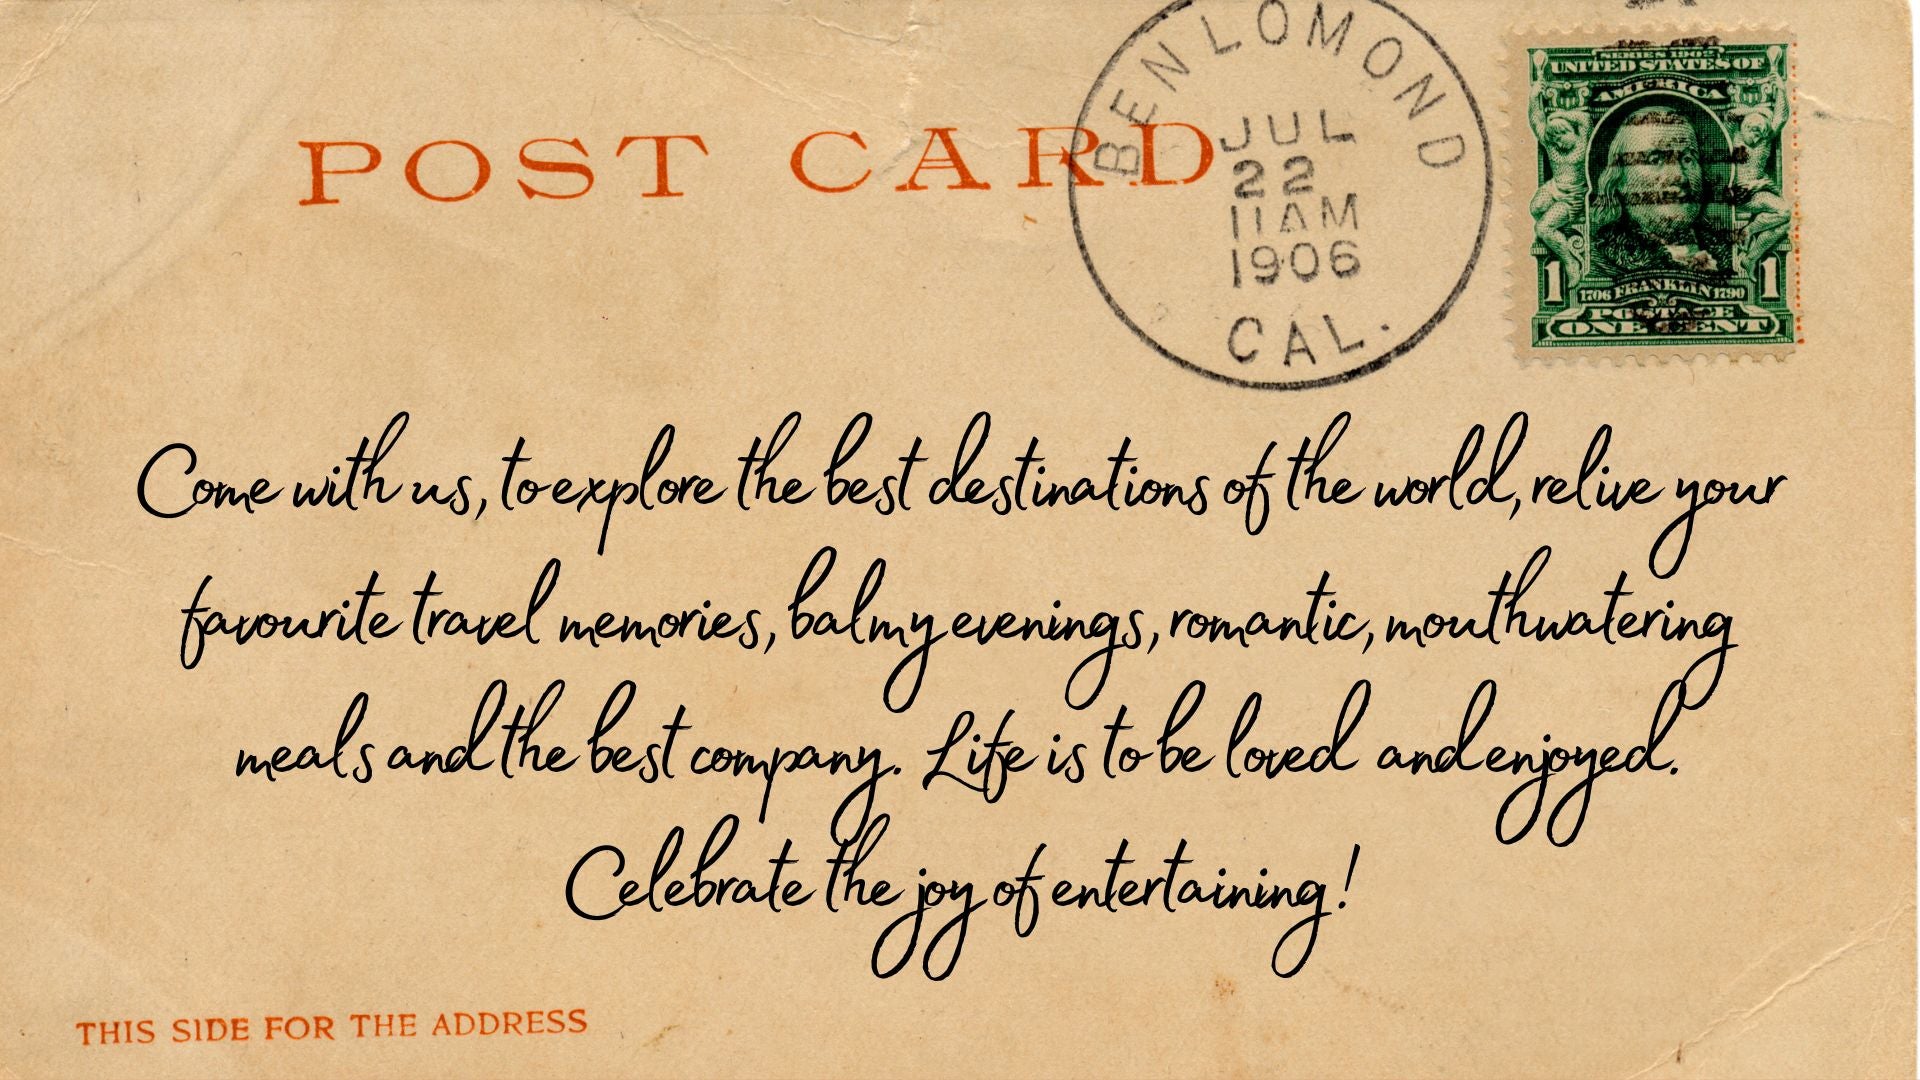 BEN LOMOND
JUL
22
11 AM
1906
CAL.
SERIES 1902
UNITED STATES OF
AMERICA
1 1
1706 FRANKLIN 1790
POSTAGE
ONE CENT
POST CARD
Come with us, to explore the best destinations of the world, relive your
favourite travel memories, balmy evenings, romantic, mouthwatering
meals and the best company. Life is to be loved and enjoyed.
Celebrate the joy of entertaining!
THIS SIDE FOR THE ADDRESS